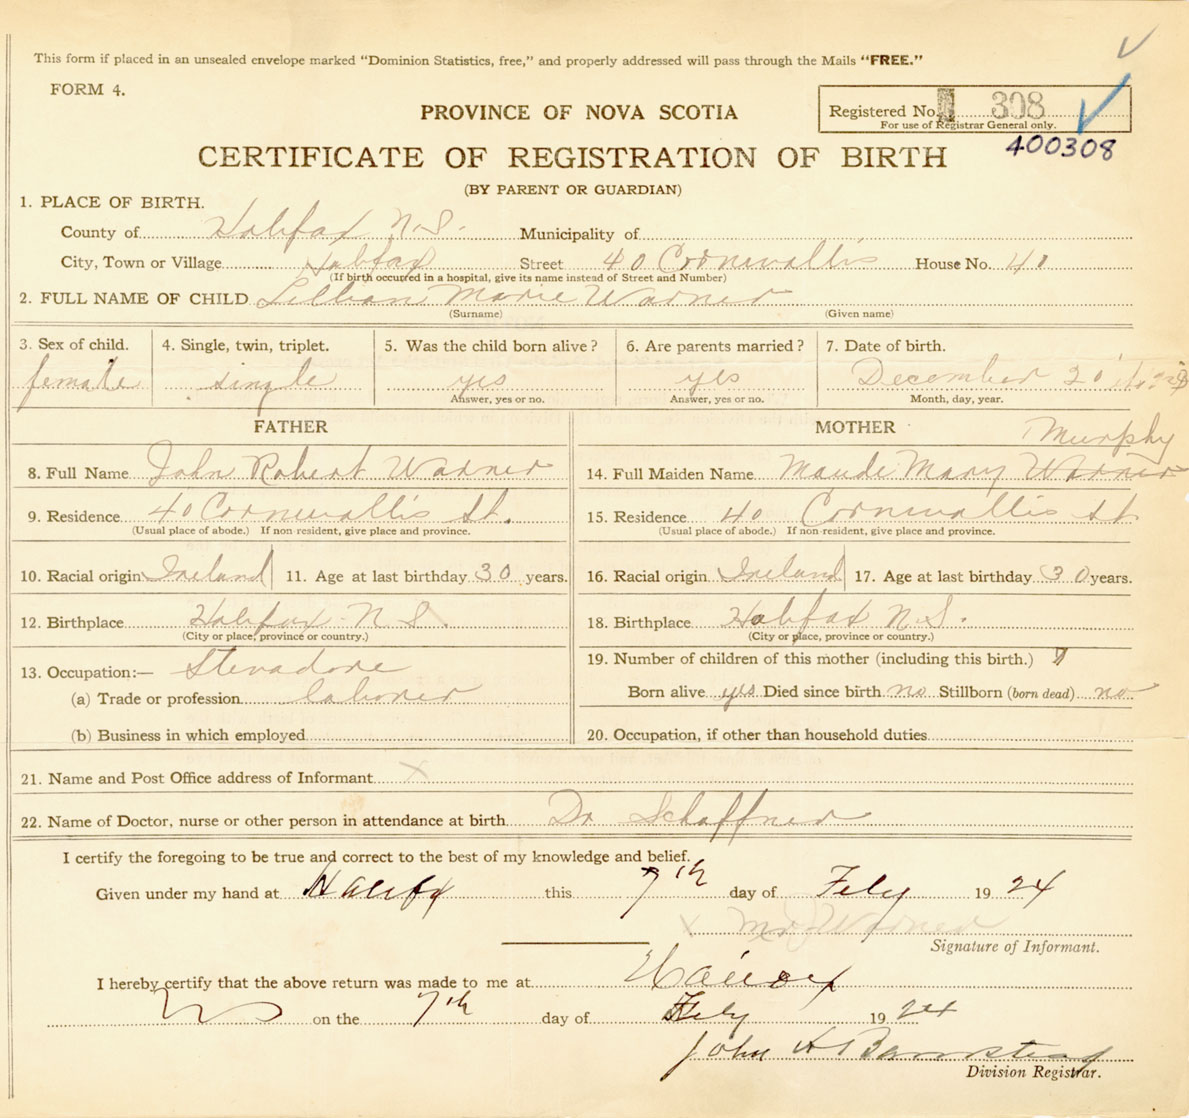 This form if placed in an unsealed envelope marked "Dominion Statistics, free," and properly addressed will pass through the Mails "FREE."
FORM 4.
PROVINCE OF NOVA SCOTIA
Registered No. 308
For use of Registrar General only.
400308
CERTIFICATE OF REGISTRATION OF BIRTH
(BY PARENT OR GUARDIAN)
1. PLACE OF BIRTH.
County of Halifax N.S. Municipality of
City, Town or Village Halifax Street 40 Cornwallis House No. 40
(If birth occurred in a hospital, give its name instead of Street and Number)
2. FULL NAME OF CHILD Lillian Marie Warner
(Surname) (Given name)
3. Sex of child. 4. Single, twin, triplet. 5. Was the child born alive? 6. Are parents married? 7. Date of birth.
female single yes yes December 20
Answer, yes or no. Answer, yes or no. Month, day, year.
FATHER MOTHER
Murphy
8. Full Name John Robert Warner 14. Full Maiden Name Maude Mary Warner
9. Residence 40 Cornwallis St. 15. Residence 40 Cornwallis St
(Usual place of abode.) If non-resident, give place and province. (Usual place of abode.) If non-resident, give place and province.
10. Racial origin Ireland 11. Age at last birthday 30 years. 16. Racial origin Ireland 17. Age at last birthday 30 years.
12. Birthplace Halifax N.S. 18. Birthplace Halifax N.S.
(City or place, province or country.) (City or place, province or country.)
13. Occupation:— Stevadore 19. Number of children of this mother (including this birth.)
(a) Trade or profession laborer Born alive yes Died since birth no Stillborn (born dead) no
(b) Business in which employed 20. Occupation, if other than household duties
21. Name and Post Office address of Informant x
22. Name of Doctor, nurse or other person in attendance at birth Dr Schaffner
I certify the foregoing to be true and correct to the best of my knowledge and belief.
Given under my hand at Halifx this 7th day of Feby 1924
x Mr J Warner
Signature of Informant.
I hereby certify that the above return was made to me at Halifax
NS on the 7th day of Feby 1924
John H Barnstead
Division Registrar.